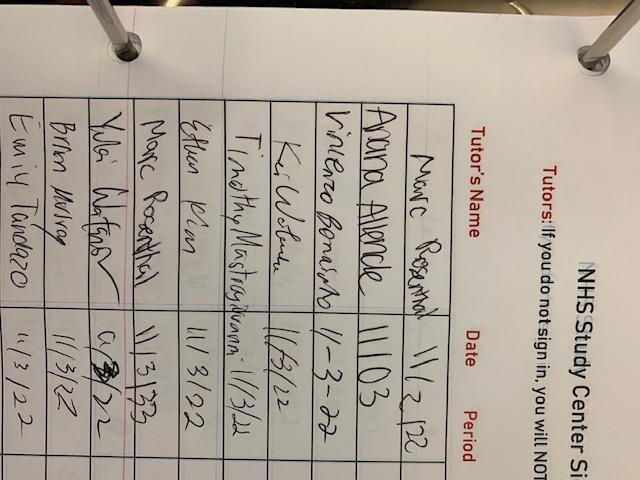 NHS Study Center Si
Tutors: If you do not sign in, you will NOT
Tutor's Name Date Period
Marc Rosenthal 11/2/22
Ariana Alonde 11/03
Vincenzo 11-3-22
Kei 11/3/22
Timothy 11/3/22
Ethan Kim 11/3/22
Marc Rosenthal 11/3/33
Yulai /22
Brian Mulray 11/3/22
Emily Tandazo 11/3/22